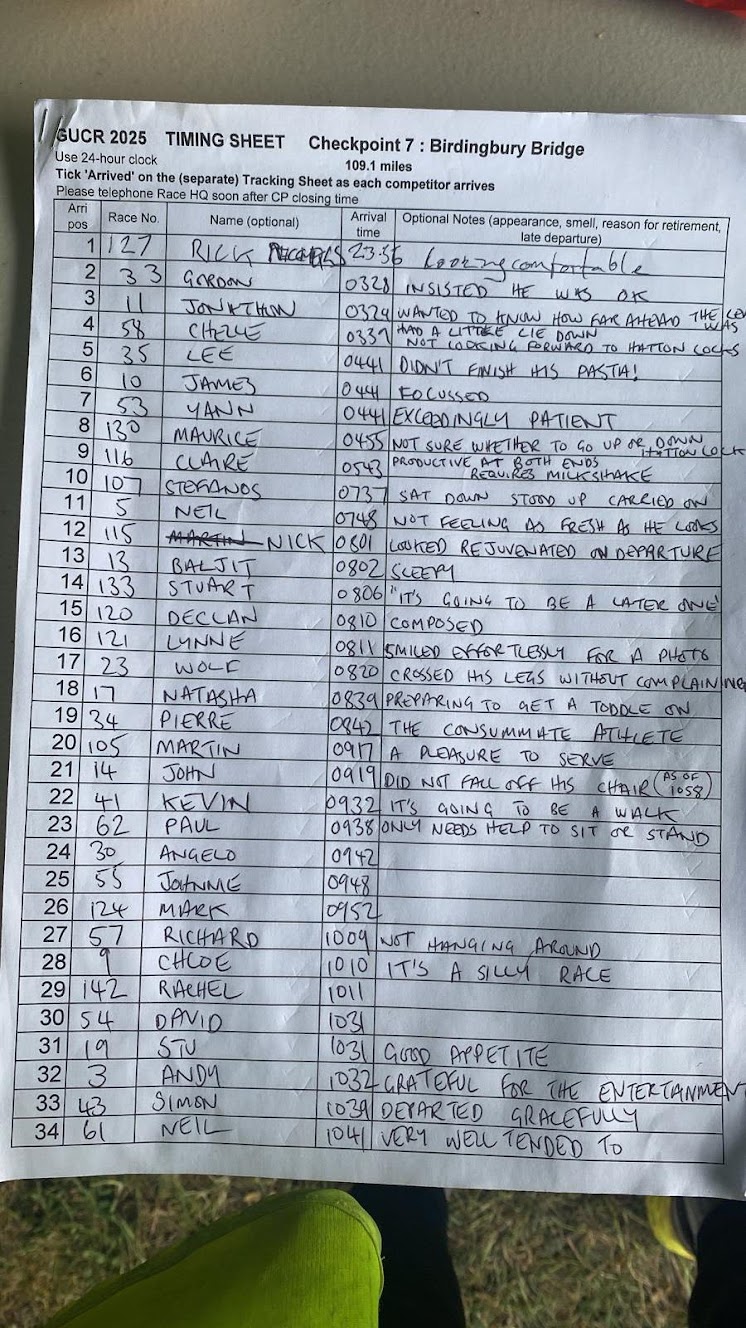 GUCR 2025 TIMING SHEET Checkpoint 7 : Birdingbury Bridge
Use 24-hour clock 109.1 miles
Tick 'Arrived' on the (separate) Tracking Sheet as each competitor arrives
Please telephone Race HQ soon after CP closing time
Arri pos Race No. Name (optional) Arrival time Optional Notes (appearance, smell, reason for retirement, late departure)
1 127 RICK 23:56 Looking comfortable
2 33 GORDON 0328 INSISTED HE WAS OK
3 11 JONATHON 0329 WANTED TO KNOW HOW FAR AHEAD THE WAS
4 58 CHELLE 0339 HAD A LITTLE LIE DOWN NOT LOOKING FORWARD TO HATTON LOCKS
5 35 LEE 0441 DIDN'T FINISH HIS PASTA!
6 10 JAMES 0441 FOCUSSED
7 53 YANN 0441 EXCEEDINGLY PATIENT
8 130 MAURICE 0455 NOT SURE WHETHER TO GO UP OR DOWN HATTON LOCK
9 116 CLAIRE 0543 PRODUCTIVE AT BOTH ENDS REQUIRES MILKSHAKE
10 107 STEFANOS 0737 SAT DOWN STOOD UP CARRIED ON
11 5 NEIL 0748 NOT FEELING AS FRESH AS HE LOOKS
12 115 MARTIN NICK 0801 LOOKED REJUVENATED ON DEPARTURE
13 13 BALJIT 0802 SLEEPY
14 133 STUART 0806 "IT'S GOING TO BE A LATER ONE"
15 120 DECLAN 0810 COMPOSED
16 121 LYNNE 0811 SMILED EFFORTLESSLY FOR A PHOTO
17 23 WOLF 0820 CROSSED HIS LEGS WITHOUT COMPLAINING
18 17 NATASHA 0839 PREPARING TO GET A TODDLE ON
19 34 PIERRE 0842 THE CONSUMMATE ATHLETE
20 105 MARTIN 0917 A PLEASURE TO SERVE
21 14 JOHN 0919 DID NOT FALL OFF HIS CHAIR (AS OF 1058)
22 41 KEVIN 0932 IT'S GOING TO BE A WALK
23 62 PAUL 0938 ONLY NEEDS HELP TO SIT OR STAND
24 30 ANGELO 0942
25 55 JOHNNIE 0948
26 124 MARK 0952
27 57 RICHARD 1009 NOT HANGING AROUND
28 9 CHLOE 1010 IT'S A SILLY RACE
29 142 RACHEL 1011
30 54 DAVID 1031
31 19 STU 1031 GOOD APPETITE
32 3 ANDY 1032 GRATEFUL FOR THE ENTERTAINMENT
33 43 SIMON 1039 DEPARTED GRACEFULLY
34 61 NEIL 1041 VERY WELL TENDED TO